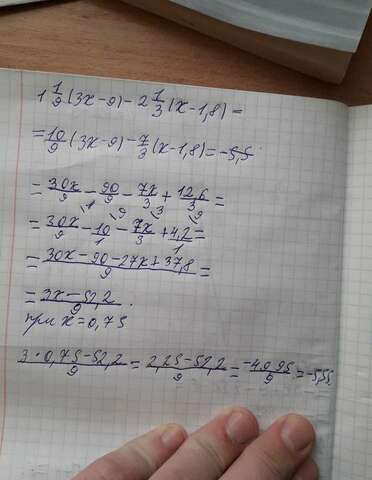 1 1/9 (3x-9) - 2 1/3 (x-1,8) =
= 10/9 (3x-9) - 7/3 (x-1,8) = -5,5
= 30x/9 - 90/9 - 7x/3 + 12,6/3 =
= 30x/9 \1 - 10/1 \9 - 7x/3 \3 + 4,2/1 \9 =
= 30x-90-27x+37,8/9 =
= 3x-52,2/9.
при x=0,75
3·0,75-52,2/9 = 2,25-52,2/9 = -49,95/9 = -5,55